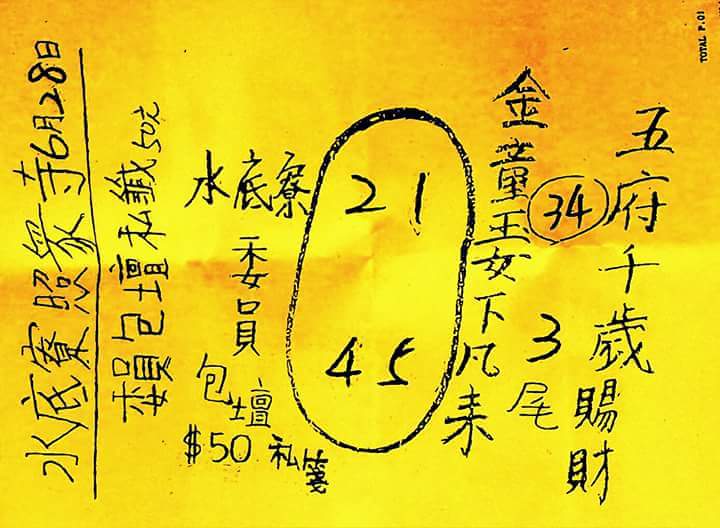 TOTAL P.01
五府千歲賜財
34
金童玉女下凡来
3尾
21
45
水底寮
委員
包壇
$50 私箋
賴包壇私籤50元
水底寮照衆寺6月28日